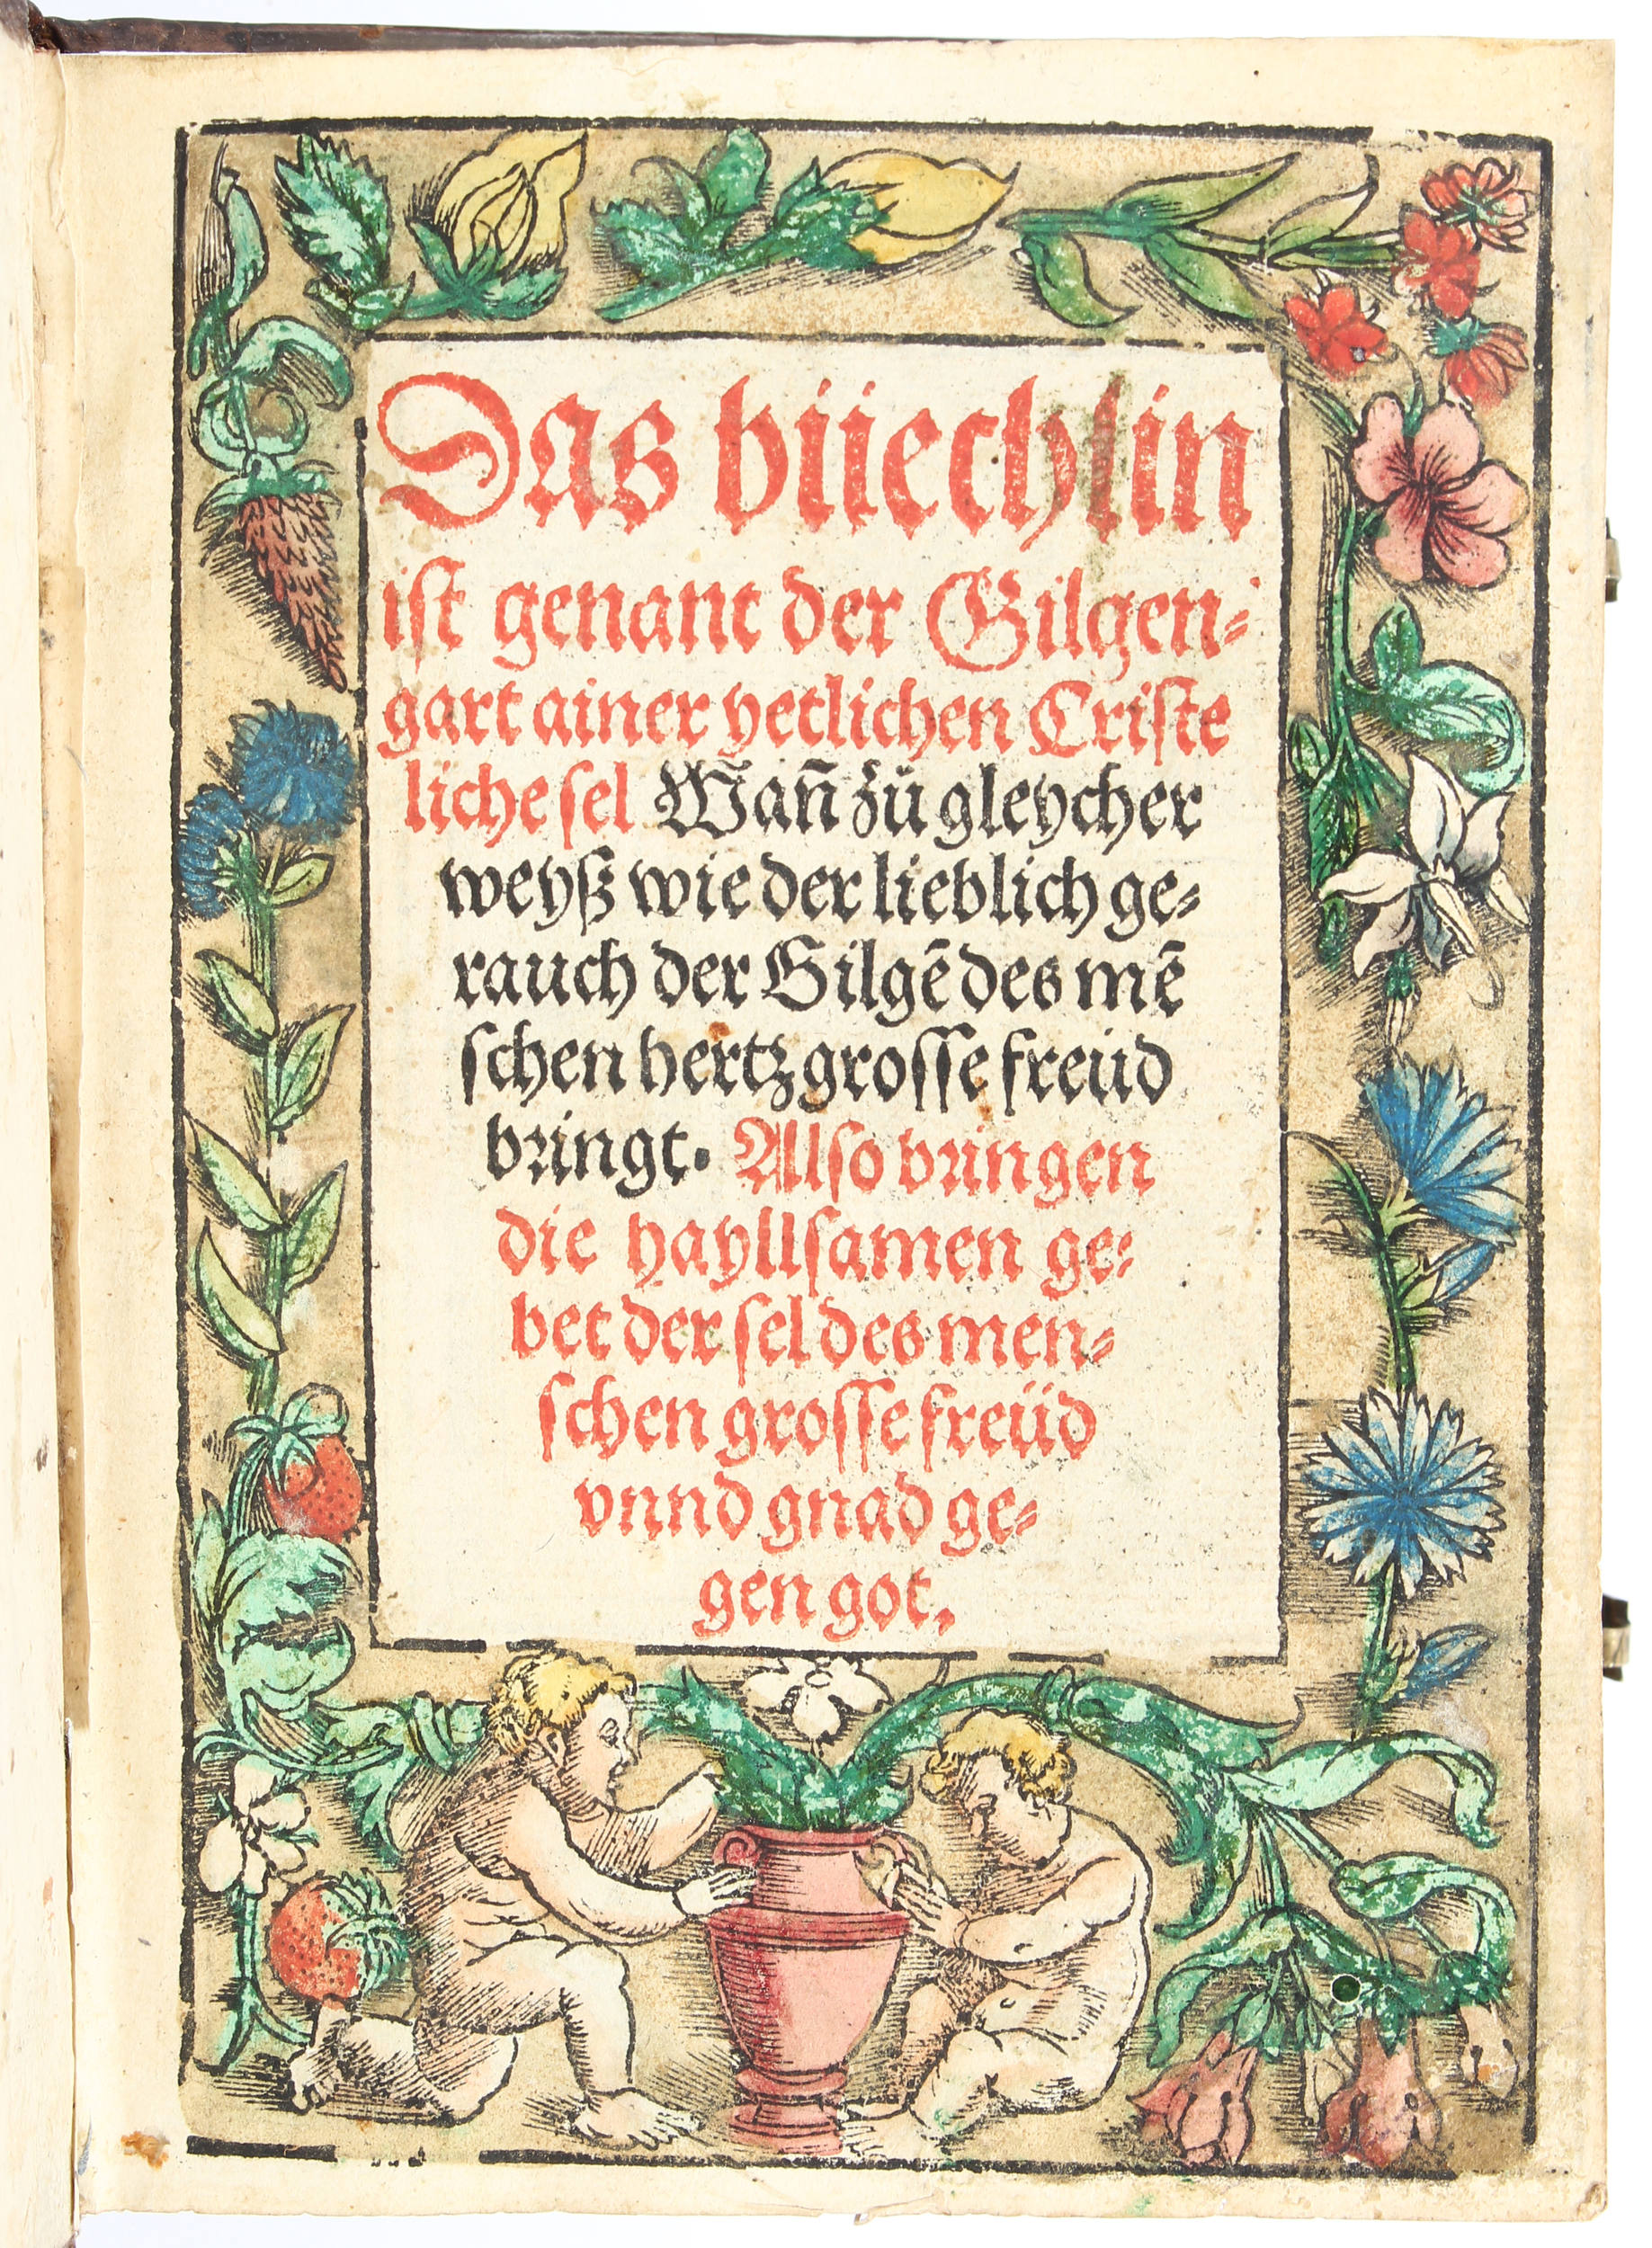 Das büechlin
ist genant der Gilgen⸗
gart ainer yetlichen Criste
liche sel Wan̄ zů gleycher
weyß wie der lieblich ge⸗
rauch der Gilgē des mē
schen hertz grosse freüd
bringt. Also bringen
die hayllsamen ge⸗
bet der sel des men⸗
schen grosse freüd
vnnd gnad ge⸗
gen got.